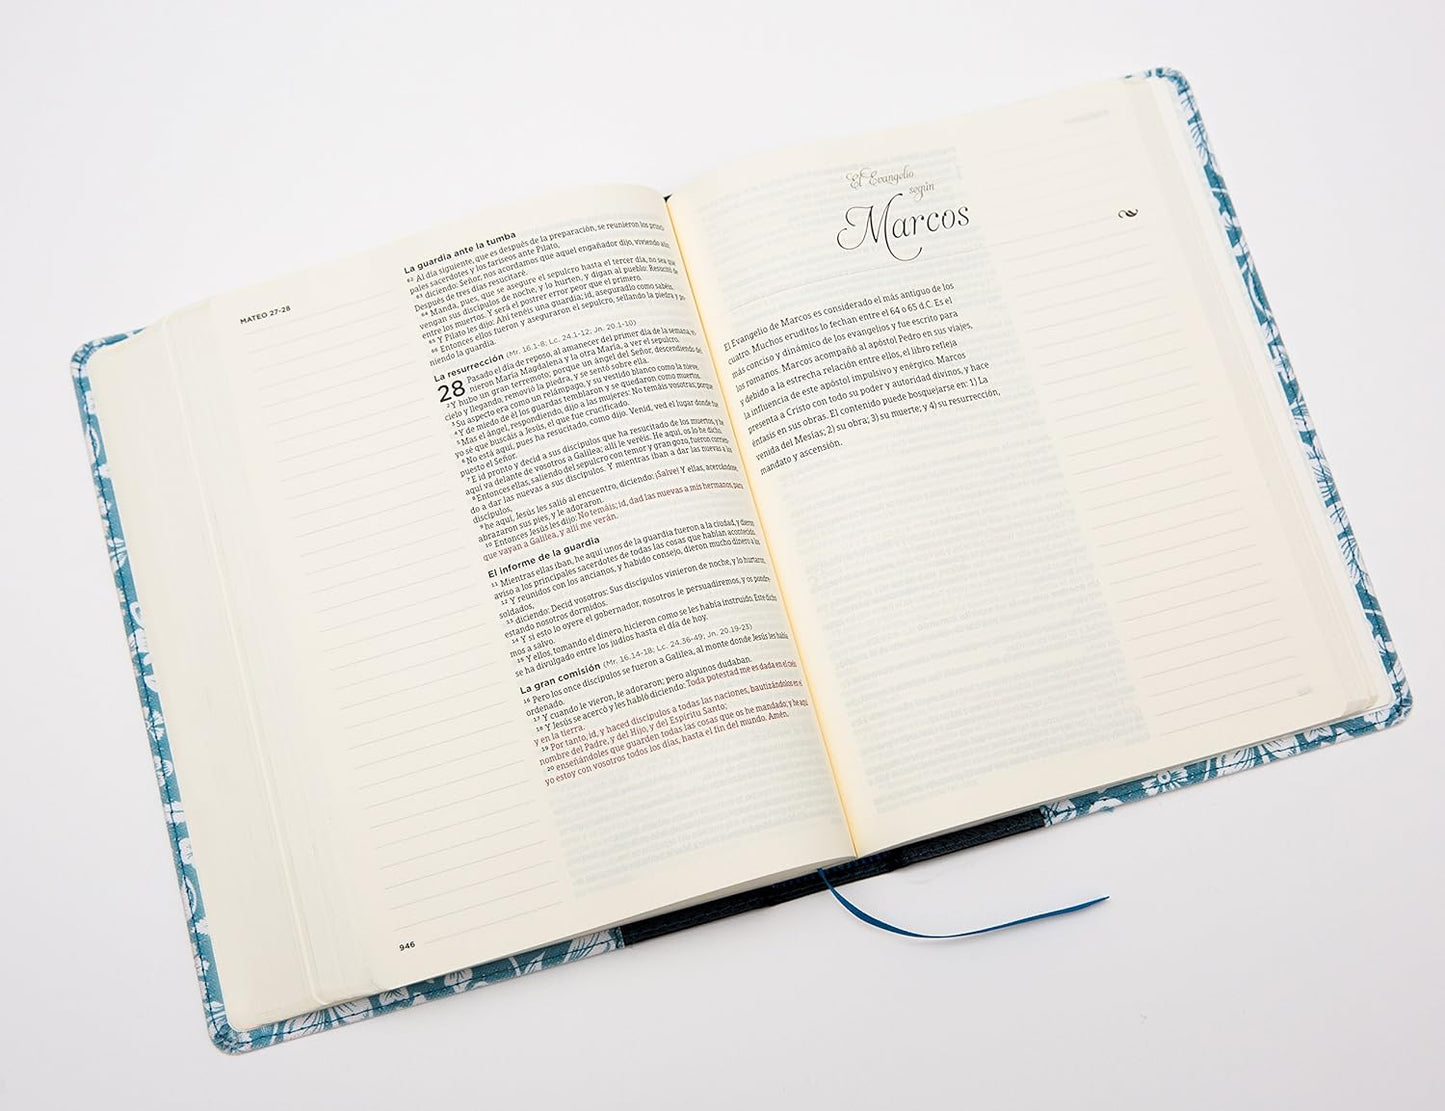 MATEO 27-28
La guardia ante la tumba
62 Al día siguiente, que es después de la preparación, se reunieron los princi-
pales sacerdotes y los fariseos ante Pilato,
63 diciendo: Señor, nos acordamos que aquel engañador dijo, viviendo aún:
Después de tres días resucitaré.
64 Manda, pues, que se asegure el sepulcro hasta el tercer día, no sea que
vengan sus discípulos de noche, y lo hurten, y digan al pueblo: Resucitó de
entre los muertos. Y será el postrer error peor que el primero.
65 Y Pilato les dijo: Ahí tenéis una guardia; id, aseguradlo como sabéis.
66 Entonces ellos fueron y aseguraron el sepulcro, sellando la piedra y po-
niendo la guardia.
La resurrección (Mr. 16.1-8; Lc. 24.1-12; Jn. 20.1-10)
28 Pasado el día de reposo, al amanecer del primer día de la semana, vi-
nieron María Magdalena y la otra María, a ver el sepulcro.
2 Y hubo un gran terremoto; porque un ángel del Señor, descendiendo del
cielo y llegando, removió la piedra, y se sentó sobre ella.
3 Su aspecto era como un relámpago, y su vestido blanco como la nieve.
4 Y de miedo de él los guardas temblaron y se quedaron como muertos.
5 Mas el ángel, respondiendo, dijo a las mujeres: No temáis vosotras; porque
yo sé que buscáis a Jesús, el que fue crucificado.
6 No está aquí, pues ha resucitado, como dijo. Venid, ved el lugar donde fue
puesto el Señor.
7 E id pronto y decid a sus discípulos que ha resucitado de los muertos, y he
aquí va delante de vosotros a Galilea; allí le veréis. He aquí, os lo he dicho.
8 Entonces ellas, saliendo del sepulcro con temor y gran gozo, fueron corrien-
do a dar las nuevas a sus discípulos. Y mientras iban a dar las nuevas a los
discípulos,
9 he aquí, Jesús les salió al encuentro, diciendo: ¡Salve! Y ellas, acercándose,
abrazaron sus pies, y le adoraron.
10 Entonces Jesús les dijo: No temáis; id, dad las nuevas a mis hermanos, para
que vayan a Galilea, y allí me verán.
El informe de la guardia
11 Mientras ellas iban, he aquí unos de la guardia fueron a la ciudad, y dieron
aviso a los principales sacerdotes de todas las cosas que habían acontecido.
12 Y reunidos con los ancianos, y habido consejo, dieron mucho dinero a los
soldados,
13 diciendo: Decid vosotros: Sus discípulos vinieron de noche, y lo hurtaron,
estando nosotros dormidos.
14 Y si esto lo oyere el gobernador, nosotros le persuadiremos, y os pondre-
mos a salvo.
15 Y ellos, tomando el dinero, hicieron como se les había instruido. Este dicho
se ha divulgado entre los judíos hasta el día de hoy.
La gran comisión (Mr. 16.14-18; Lc. 24.36-49; Jn. 20.19-23)
16 Pero los once discípulos se fueron a Galilea, al monte donde Jesús les había
ordenado.
17 Y cuando le vieron, le adoraron; pero algunos dudaban.
18 Y Jesús se acercó y les habló diciendo: Toda potestad me es dada en el cielo
y en la tierra.
19 Por tanto, id, y haced discípulos a todas las naciones, bautizándolos en el
nombre del Padre, y del Hijo, y del Espíritu Santo;
20 enseñándoles que guarden todas las cosas que os he mandado; y he aquí
yo estoy con vosotros todos los días, hasta el fin del mundo. Amén.
946
El Evangelio
según
Marcos
El Evangelio de Marcos es considerado el más antiguo de los
cuatro. Muchos eruditos lo fechan entre el 64 o 65 d.C. Es el
más conciso y dinámico de los evangelios y fue escrito para
los romanos. Marcos acompañó al apóstol Pedro en sus viajes,
y debido a la estrecha relación entre ellos, el libro refleja
la influencia de este apóstol impulsivo y enérgico. Marcos
presenta a Cristo con todo su poder y autoridad divinos, y hace
énfasis en sus obras. El contenido puede bosquejarse en: 1) La
venida del Mesías; 2) su obra; 3) su muerte; y 4) su resurrección,
mandato y ascensión.